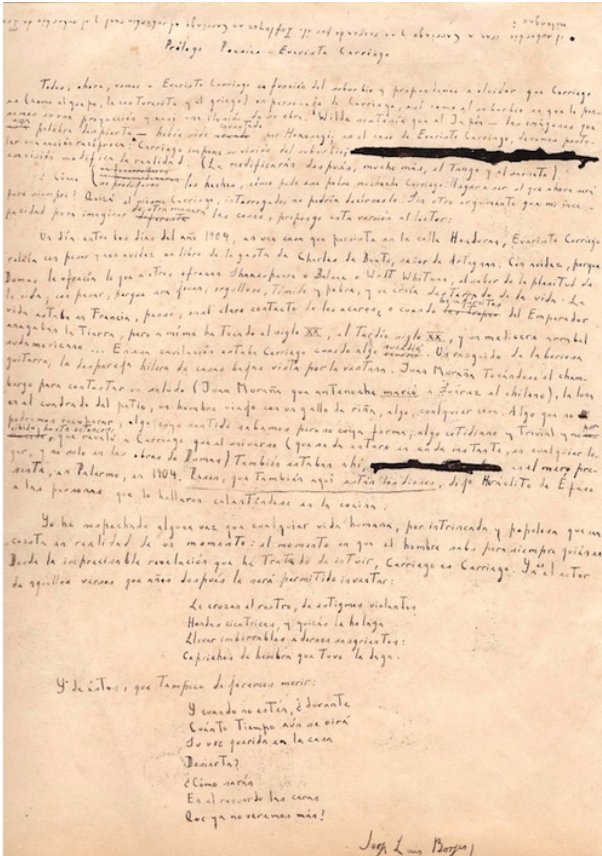 Prólogo Poesías - Evaristo Carriego
Todos, ahora, vemos a Evaristo Carriego en función del suburbio y propendemos a olvidar que Carriego
es (como el guapo, la costurerita y el gringo) un personaje de Carriego, así como el suburbio en que lo pen-
samos es una proyección y casi una ilusión de su obra. Wilde sostenía que el Japón - las imágenes que
esa palabra despierta - había sido inventado por Hokusai; en el caso de Evaristo Carriego, debemos postu-
lar una acción recíproca: Carriego impone su visión del suburbio;
esa visión modifica la realidad. (La modificarán después, mucho más, el Tango y el sainete).
¿Cómo se produjeron los hechos, cómo pudo ese pobre muchacho Carriego llegar a ser el que ahora será
para siempre? Quizá el mismo Carriego, interrogado, no podría decírnoslo. Sin otro argumento que mi inca-
pacidad para imaginar de otra manera las cosas, propongo esta versión al lector:
Un día entre los días del año 1904, en una casa que persiste en la calle Honduras, Evaristo Carriego
releía con pesar y con avidez un libro de la gesta de Charles de Baatz, señor de Artagnan. Con avidez, porque
Dumas le ofrecía lo que a otros ofrecen Shakespeare o Balzac o Walt Whitman, el sabor de la plenitud de
la vida; con pesar, porque era joven, orgulloso, Tímido y pobre, y se creía desterrado de la vida. La
vida estaba en Francia, pensó, en el claro contacto de los aceros, o cuando los ejércitos del Emperador
anegaban la Tierra, pero a mí me ha Tocado el siglo XX, el Tardío siglo XX, y un mediocre arrabal
sudamericano ... En esa cavilación estaba Carriego cuando algo sucedió. Un rasguido de laboriosa
guitarra, la despareja hilera de casas bajas vistas por la ventana, Juan Muraña Tocándose el cham-
bergo para contestar un saludo (Juan Muraña que anteanoche marcó a Suárez el chileno), la luna
en el cuadrado del patio, un hombre viejo con un gallo de riña, algo, cualquier cosa. Algo que no
podremos recuperar, algo cuyo sentido sabemos pero no cuya forma, algo cotidiano y Trivial y no per-
cibido hasta entonces, que reveló a Carriego que el universo (que se da entero en cada instante, en cualquier lu-
gar, y no sólo en las obras de Dumas) También estaba ahí, en el mero pre-
sente, en Palermo, en 1904. Entren, que También aquí están los dioses, dijo Heráclito de Éfeso
a las personas que lo hallaron calentándose en la cocina.
Yo he sospechado alguna vez que cualquier vida humana, por intrincada y populosa que sea,
consta en realidad de un momento: el momento en que el hombre sabe para siempre quién es.
Desde la imprecisable revelación que he Tratado de intuir, Carriego es Carriego. Ya es el autor
de aquellos versos que años después le será permitido inventar:
Le cruzan el rostro, de estigmas violentos
Hondas cicatrices, y quizás le halaga
Llevar imborrables adornos sangrientos:
Caprichos de hembra que Tuvo la daga.
Y de éstos, que Tampoco dejaremos morir:
Y cuando no estén, ¿durante
Cuánto Tiempo aún se oirá
Su voz querida en la casa
Desierta?
¿Cómo serán
En el recuerdo las caras
Que ya no veremos más?
Jorge Luis Borges